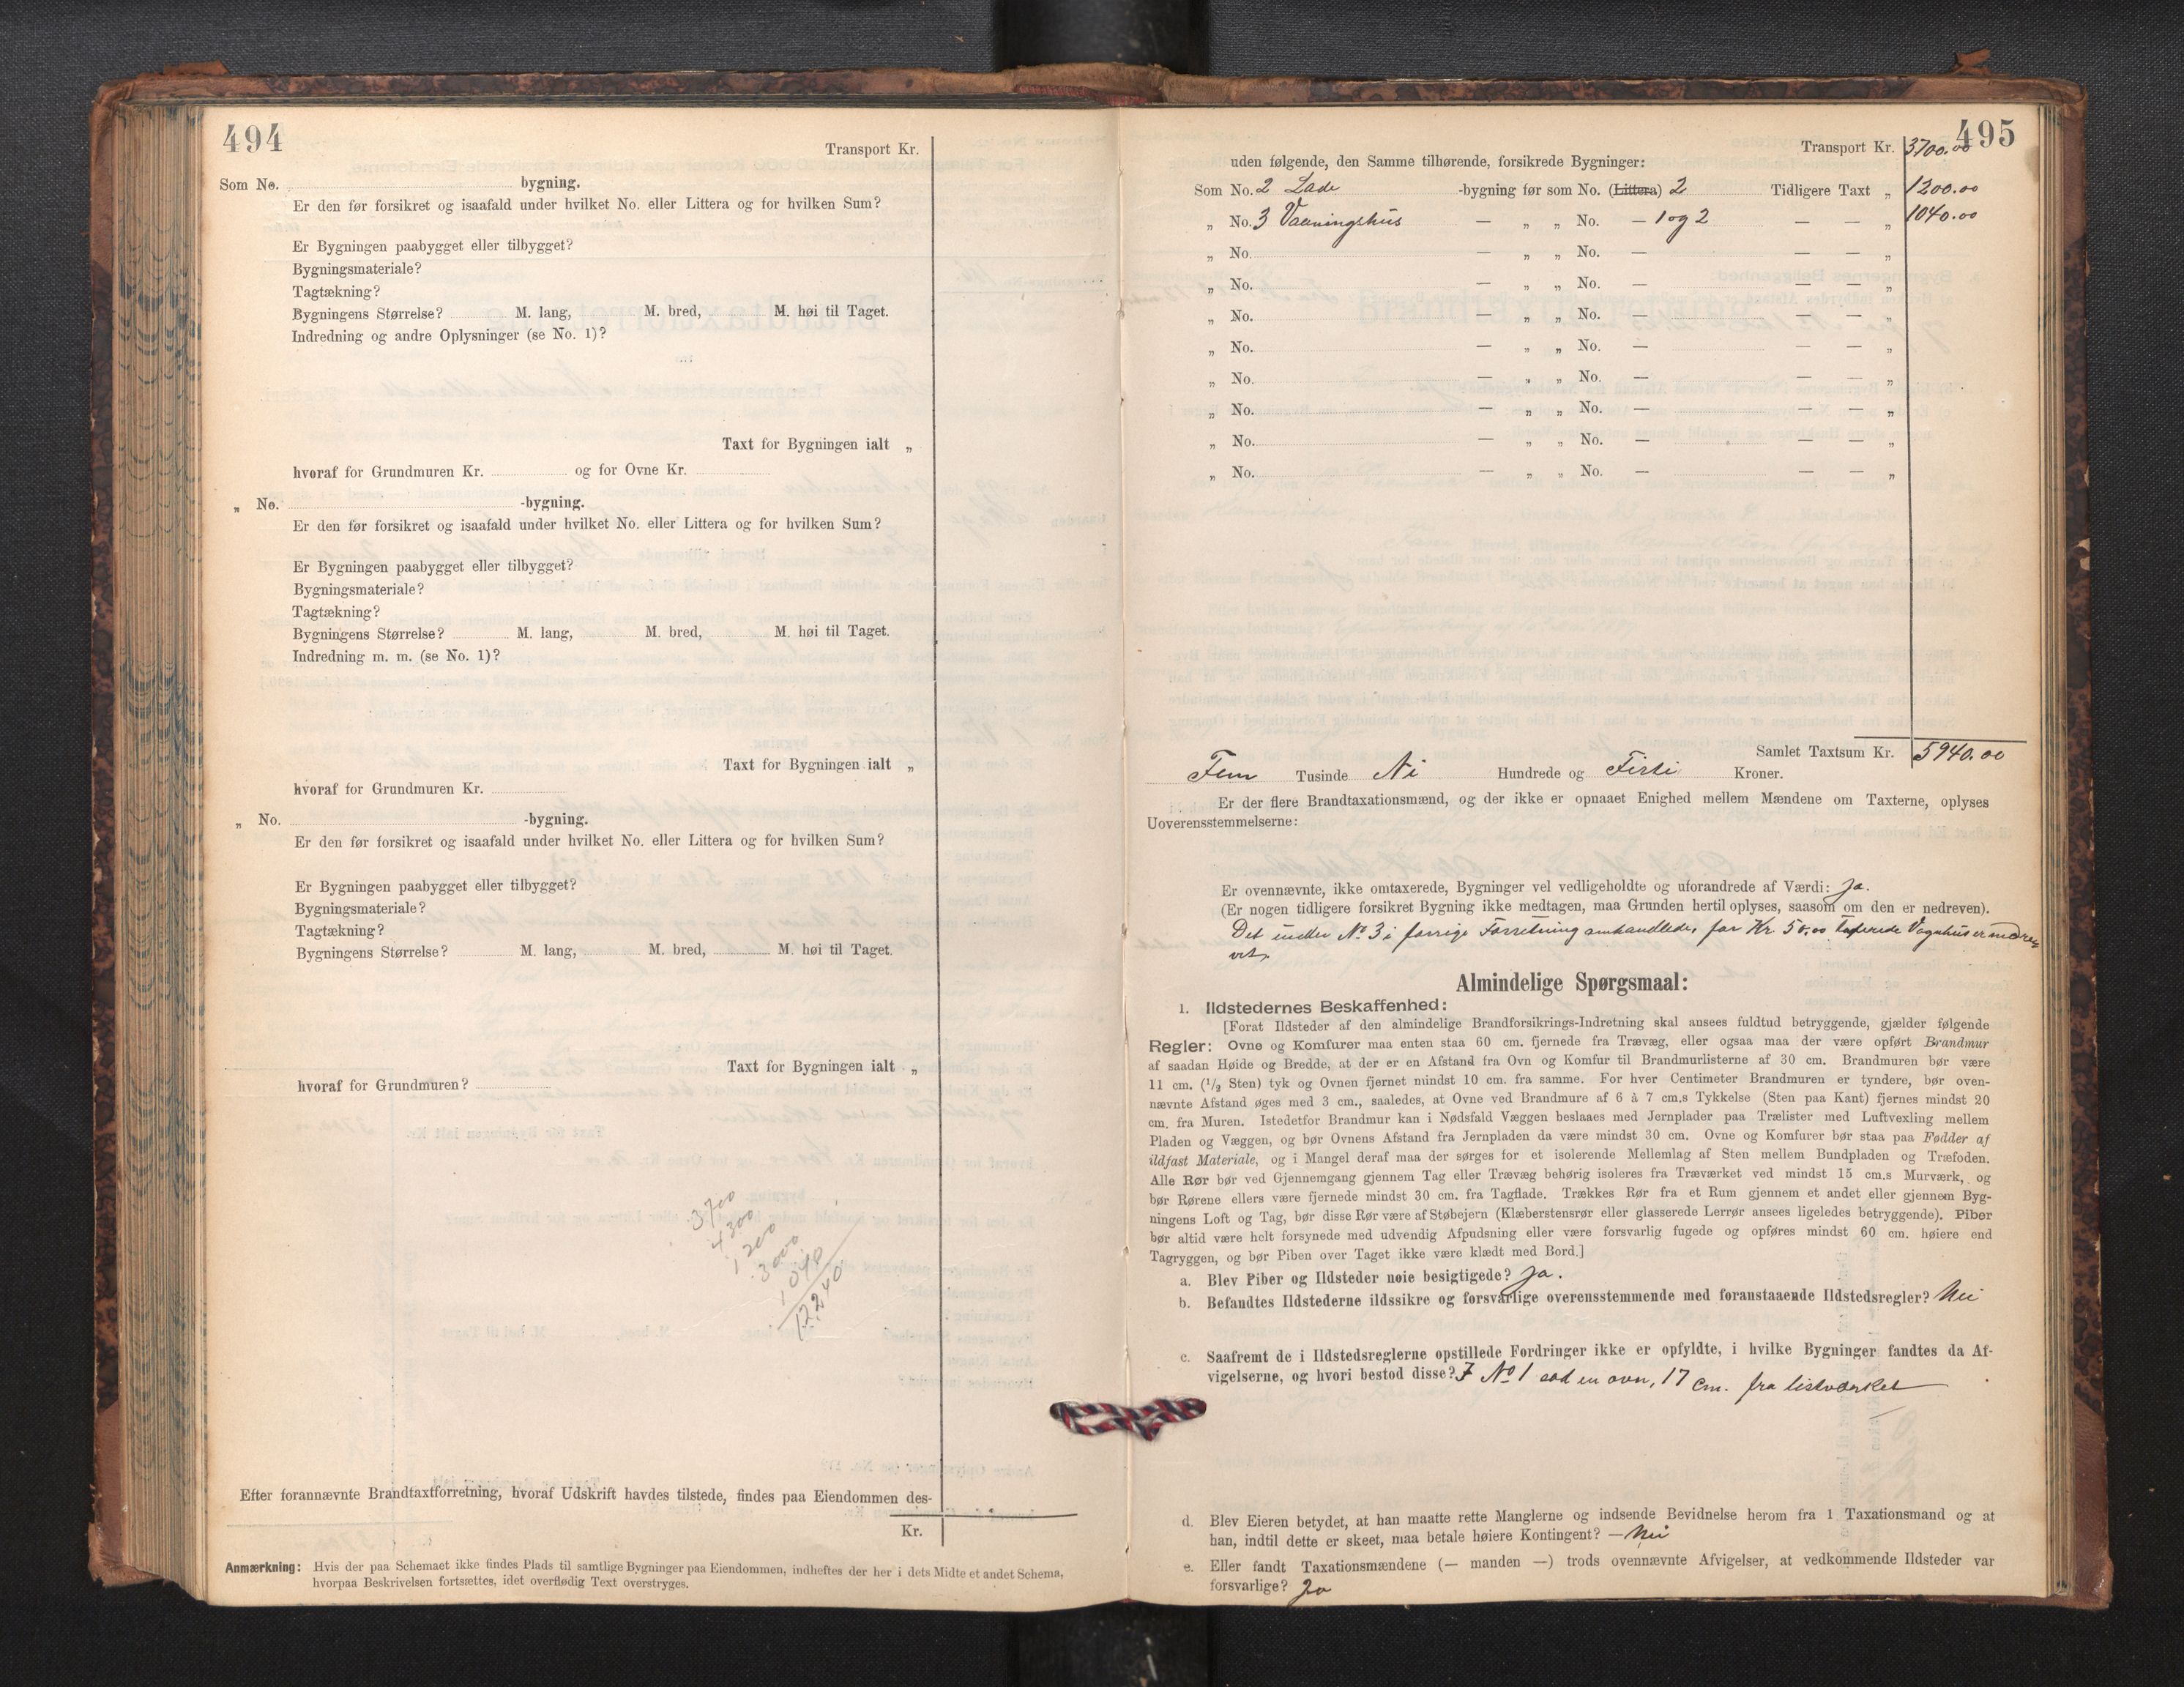 494
Transport Kr.
Som No. bygning.
Er den før forsikret og isaafald under hvilket No. eller Littera og for hvilken Sum?
Er Bygningen paabygget eller tilbygget?
Bygningsmateriale?
Tagtækning?
Bygningens Størrelse? M. lang, M. bred, M. høi til Taget.
Indredning og andre Oplysninger (se No. 1)?
Taxt for Bygningen ialt „
hvoraf for Grundmuren Kr. og for Ovne Kr.
„ No. -bygning.
Er den før forsikret og isaafald under hvilket No. eller Littera og for hvilken Sum?
Er Bygningen paabygget eller tilbygget?
Bygningsmateriale?
Tagtækning?
Bygningens Størrelse? M. lang, M. bred, M. høi til Taget.
Indredning m. m. (se No. 1)?
Taxt for Bygningen ialt „
hvoraf for Grundmuren Kr.
„ No. -bygning.
Er den før forsikret og isaafald under hvilket No. eller Littera og for hvilken Sum?
Er Bygningen paabygget eller tilbygget?
Bygningsmateriale?
Tagtækning?
Bygningens Størrelse? M. lang, M. bred, M. høi til Taget.
Taxt for Bygningen ialt „
hvoraf for Grundmuren?
3700
4300
1200
3000
1040
12240
Efter forannævnte Brandtaxtforretning, hvoraf Udskrift havdes tilstede, findes paa Eiendommen des-
Kr.
Anmærkning: Hvis der paa Schemaet ikke findes Plads til samtlige Bygninger paa Eiendommen, indheftes der her i dets Midte et andet Schema,
hvorpaa Beskrivelsen fortsættes, idet overflødig Text overstryges.
495
Transport Kr. 3700.00
uden følgende, den Samme tilhørende, forsikrede Bygninger:
Som No. 2 Lade -bygning før som No. (Littera) 2 Tidligere Taxt „ 1200.00
„ No. 3 Vaaningshus — „ „ No. — 1 og 2 — — „ 1040.00
„ No. — „ „ No. — — — „
„ No. — „ „ No. — — — „
„ No. — „ „ No. — — — „
„ No. — „ „ No. — — — „
„ No. — „ „ No. — — — „
„ No. — „ „ No. — — — „
„ No. — „ „ No. — — — „
„ No. — „ „ No. — — — „
Samlet Taxtsum Kr. 5940.00
Fem Tusinde Ni Hundrede og Firti Kroner.
Er der flere Brandtaxationsmænd, og der ikke er opnaaet Enighed mellem Mændene om Taxterne, oplyses
Uoverensstemmelserne:
Er ovennævnte, ikke omtaxerede, Bygninger vel vedligeholdte og uforandrede af Værdi: Ja.
(Er nogen tidligere forsikret Bygning ikke medtagen, maa Grunden hertil oplyses, saasom om den er nedreven).
Det under No 3 i forrige Forretning omhandlede, for Kr. 50.00 taxerede Vognhus er nedre-
vet.
Almindelige Spørgsmaal:
1. Ildstedernes Beskaffenhed:
[Forat Ildsteder af den almindelige Brandforsikrings-Indretning skal ansees fuldtud betryggende, gjælder følgende
Regler: Ovne og Komfurer maa enten staa 60 cm. fjernede fra Trævæg, eller ogsaa maa der være opført Brandmur
af saadan Høide og Bredde, at der er en Afstand fra Ovn og Komfur til Brandmurlisterne af 30 cm. Brandmuren bør være
11 cm. (1/2 Sten) tyk og Ovnen fjernet mindst 10 cm. fra samme. For hver Centimeter Brandmuren er tyndere, bør oven-
nævnte Afstand øges med 3 cm., saaledes, at Ovne ved Brandmure af 6 à 7 cm.s Tykkelse (Sten paa Kant) fjernes mindst 20
cm. fra Muren. Istedetfor Brandmur kan i Nødsfald Væggen beslaaes med Jernplader paa Trælister med Luftvexling mellem
Pladen og Væggen, og bør Ovnens Afstand fra Jernpladen da være mindst 30 cm. Ovne og Komfurer bør staa paa Fødder af
ildfast Materiale, og i Mangel deraf maa der sørges for et isolerende Mellemlag af Sten mellem Bundpladen og Træfoden.
Alle Rør bør ved Gjennemgang gjennem Tag eller Trævæg behørig isoleres fra Træværket ved mindst 15 cm.s Murværk, og
bør Rørene ellers være fjernede mindst 30 cm. fra Tagflade. Trækkes Rør fra et Rum gjennem et andet eller gjennem Byg-
ningens Loft og Tag, bør disse Rør være af Støbejern (Klæberstensrør eller glasserede Lerrør ansees ligeledes betryggende). Piber
bør altid være helt forsynede med udvendig Afpudsning eller være forsvarlig fugede og opføres mindst 60 cm. høiere end
Tagryggen, og bør Piben over Taget ikke være klædt med Bord.]
a. Blev Piber og Ildsteder nøie besigtigede? Ja.
b. Befandtes Ildstederne ildssikre og forsvarlige overensstemmende med foranstaaende Ildstedsregler? Nei
c. Saafremt de i Ildstedsreglerne opstillede Fordringer ikke er opfyldte, i hvilke Bygninger fandtes da Af-
vigelserne, og hvori bestod disse? I No 1 stod en ovn, 17 cm. fra listværket
d. Blev Eieren betydet, at han maatte rette Manglerne og indsende Bevidnelse herom fra 1 Taxationsmand og at
han, indtil dette er skeet, maa betale høiere Kontingent? — Nei
e. Eller fandt Taxationsmændene (— manden —) trods ovennævnte Afvigelser, at vedkommende Ildsteder var
forsvarlige? Ja